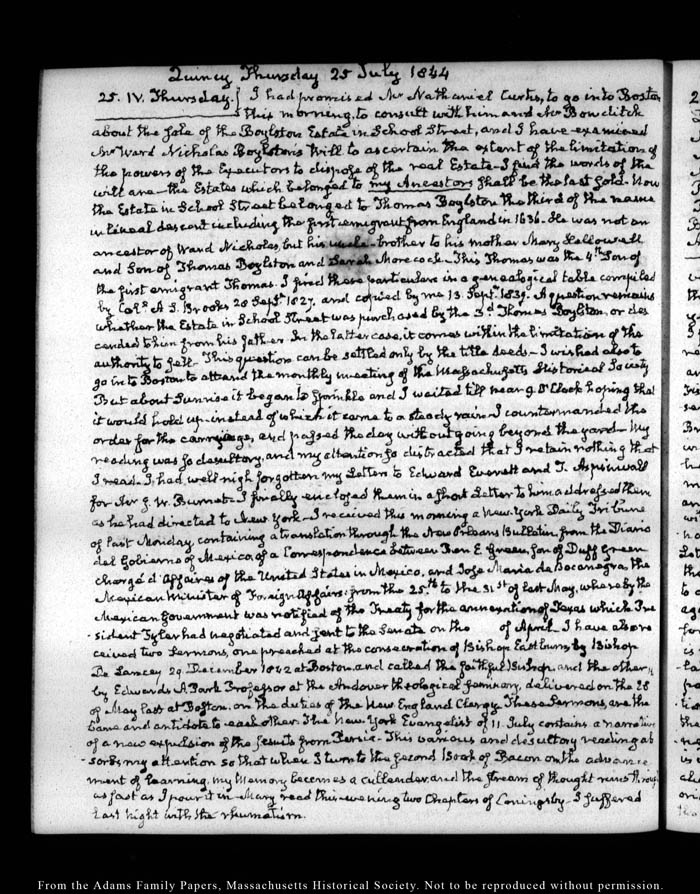 Quincy Thursday 25 July 1844
25. IV. Thursday. I had promised Mr Nathaniel Curtis, to go into Boston
this morning, to consult with him and Mr Bowditch
about the sale of the Boylston Estate in School Street, and I have examined
Mr Ward Nicholas Boylston's Will to ascertain the extent of the limitation of
the powers of the Executors to dispose of the real Estate - I find the words of the
will are - the Estates which belonged to my Ancestors shall be the last sold. Now
the Estate in School Street belonged to Thomas Boylston the third of the name
in lineal descent including the first emigrant from England in 1636. He was not an
ancestor of Ward Nicholas, but his uncle - brother to his mother Mary Hallowell
and Son of Thomas Boylston and Sarah Morecock. This Thomas was the 4th Son of
the first emigrant Thomas. I find these particulars in a genealogical table compiled
by A S. Brooks 28 Septr 1827. and copied by me 13. Septr 1839. A question remains
whether the Estate in School Street was purchased by the 3d Thomas Boylston, or des
cended to him from his father. In the latter case, it comes within the limitation of the
authority to sell - This question can be settled only by the title deeds - I wished also to
go in to Boston to attend the monthly meeting of the Massachusetts Historical Society
But about Sunrise it began to sprinkle and I waited till near 9. O'Clock hoping that
it would hold up. instead of which it came to a steady rain - I countermanded the
order for the carryage, and passed the day without going beyond the yard - My
reading was so desultory, and my attention so distracted that I retain nothing that
I read. I had well nigh forgotten my Letters to Edward Everett and T. Aspinwall
for Mr J. W. Burnet - I finally enclosed them in a short Letter to him addressed them
as he had directed to New York - I received this morning a New-York Daily Tribune
of last Monday, containing a translation through the New Orleans Bulletin, from the Diario
del Gobierno of Mexico, of a Correspondence between Ben E Green, son of Duff Green
chargé d'Affaires of the United States in Mexico, and Jose Maria de Bocanegra, the
Mexican Minister of Foreign Affairs: from the 25th to the 31st of last May, whereby the
Mexican Government was notified of the Treaty for the annexation of Texas which Pre
sident Tyler had negotiated and sent to the Senate on the of April - I have also re
ceived two Sermons, one preached at the consecration of Bishop Eastburn, by Bishop
De Lancey 29. December 1842 at Boston, and called the faithful Bishop, and the other
by Edwards A Park Professor at the Andover theological seminary, delivered on the 28
of May last at Boston, on the duties of the New England Clergy. These Sermons, are the
bane and antidote to each other. The New York Evangelist of 11 July contains a narrative
of a new expulsion of the Jesuits from Persia. This various and desultory reading ab
sorbs my attention so that when I turn to the second Book of Bacon on the advance
ment of learning, my Memory becomes a cullender, and the stream of thought runs through
as fast as I pour it in - Mary read this evening two Chapters of Coningsby - I suffered
last night with the rheumatism.
From the Adams Family Papers, Massachusetts Historical Society. Not to be reproduced without permission.